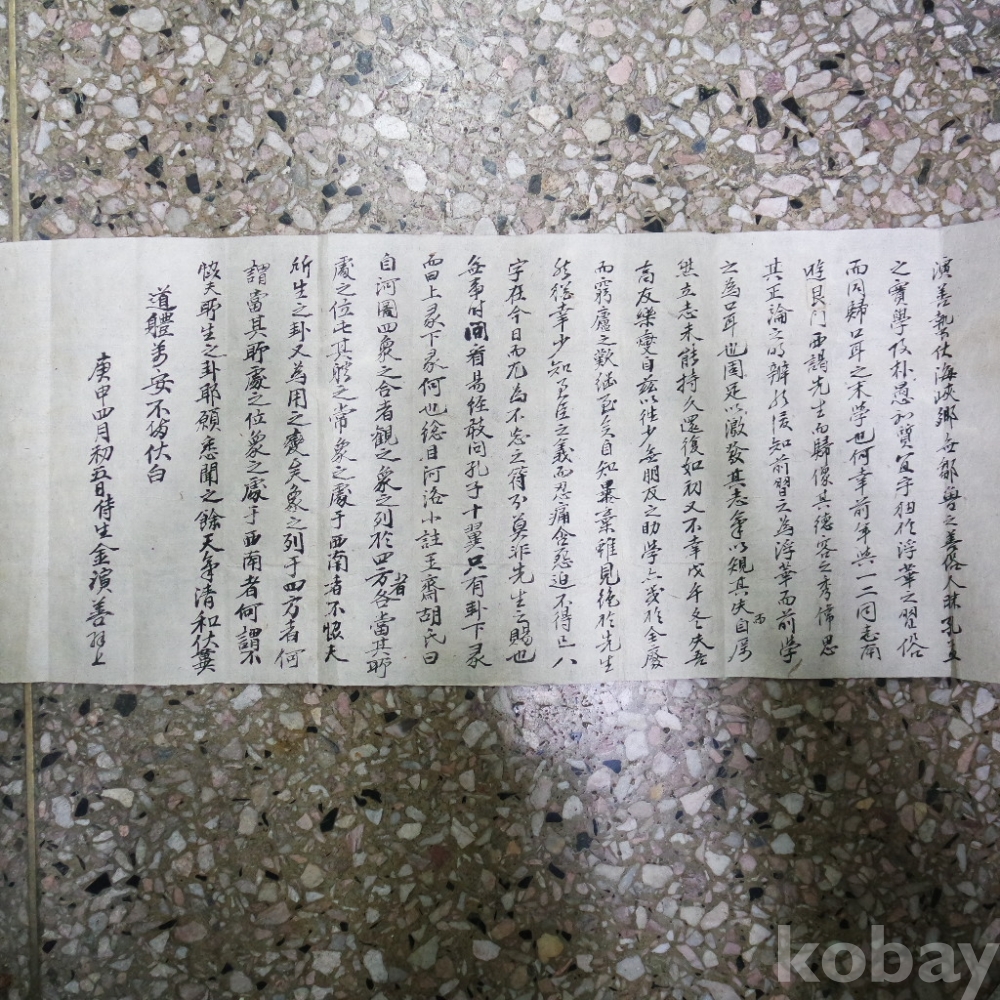 演善蟄伏海峽鄕無鄒魯之善俗人昧孔孟
之實學佼朴愚和質宜乎狃於浮華之習俗
而因歸口耳之末學也何幸前年共一二同志南
遊艮門再謁先生而歸像其德容之秀偉思
其正論之明辨然後知前習之為浮華而前學
之為口耳也固足以激發其志氣以規其失而自厲
然立志未能持久還復如初又不幸戊午冬失吾
高友樂變自玆以往少無朋友之助學亦或於全廢
而窮廬之歎極至矣自知暴棄雖見絶於先生
然從幸少知君臣之義而忍痛含怨迫不得已八
字在今日而尤為不忘之符不莫非先生之賜也
無事時閒看易經敢問孔子十翼只有卦下彖
而曰上彖下彖何也総目河洛小註玉齋胡氏曰
自河圖四象之合者觀之象之列於四方者各當其所
處之位七其然之常象之處于西南者不惟失
所生之卦又為用之變矣象之列于四方者何
謂當其所處之位象之處于西南者何謂不
惟失所生之卦耶願悉聞之餘天氣淸和伏冀
道體萬安不備伏白
庚申四月初五日侍生金演善拜上
kobay